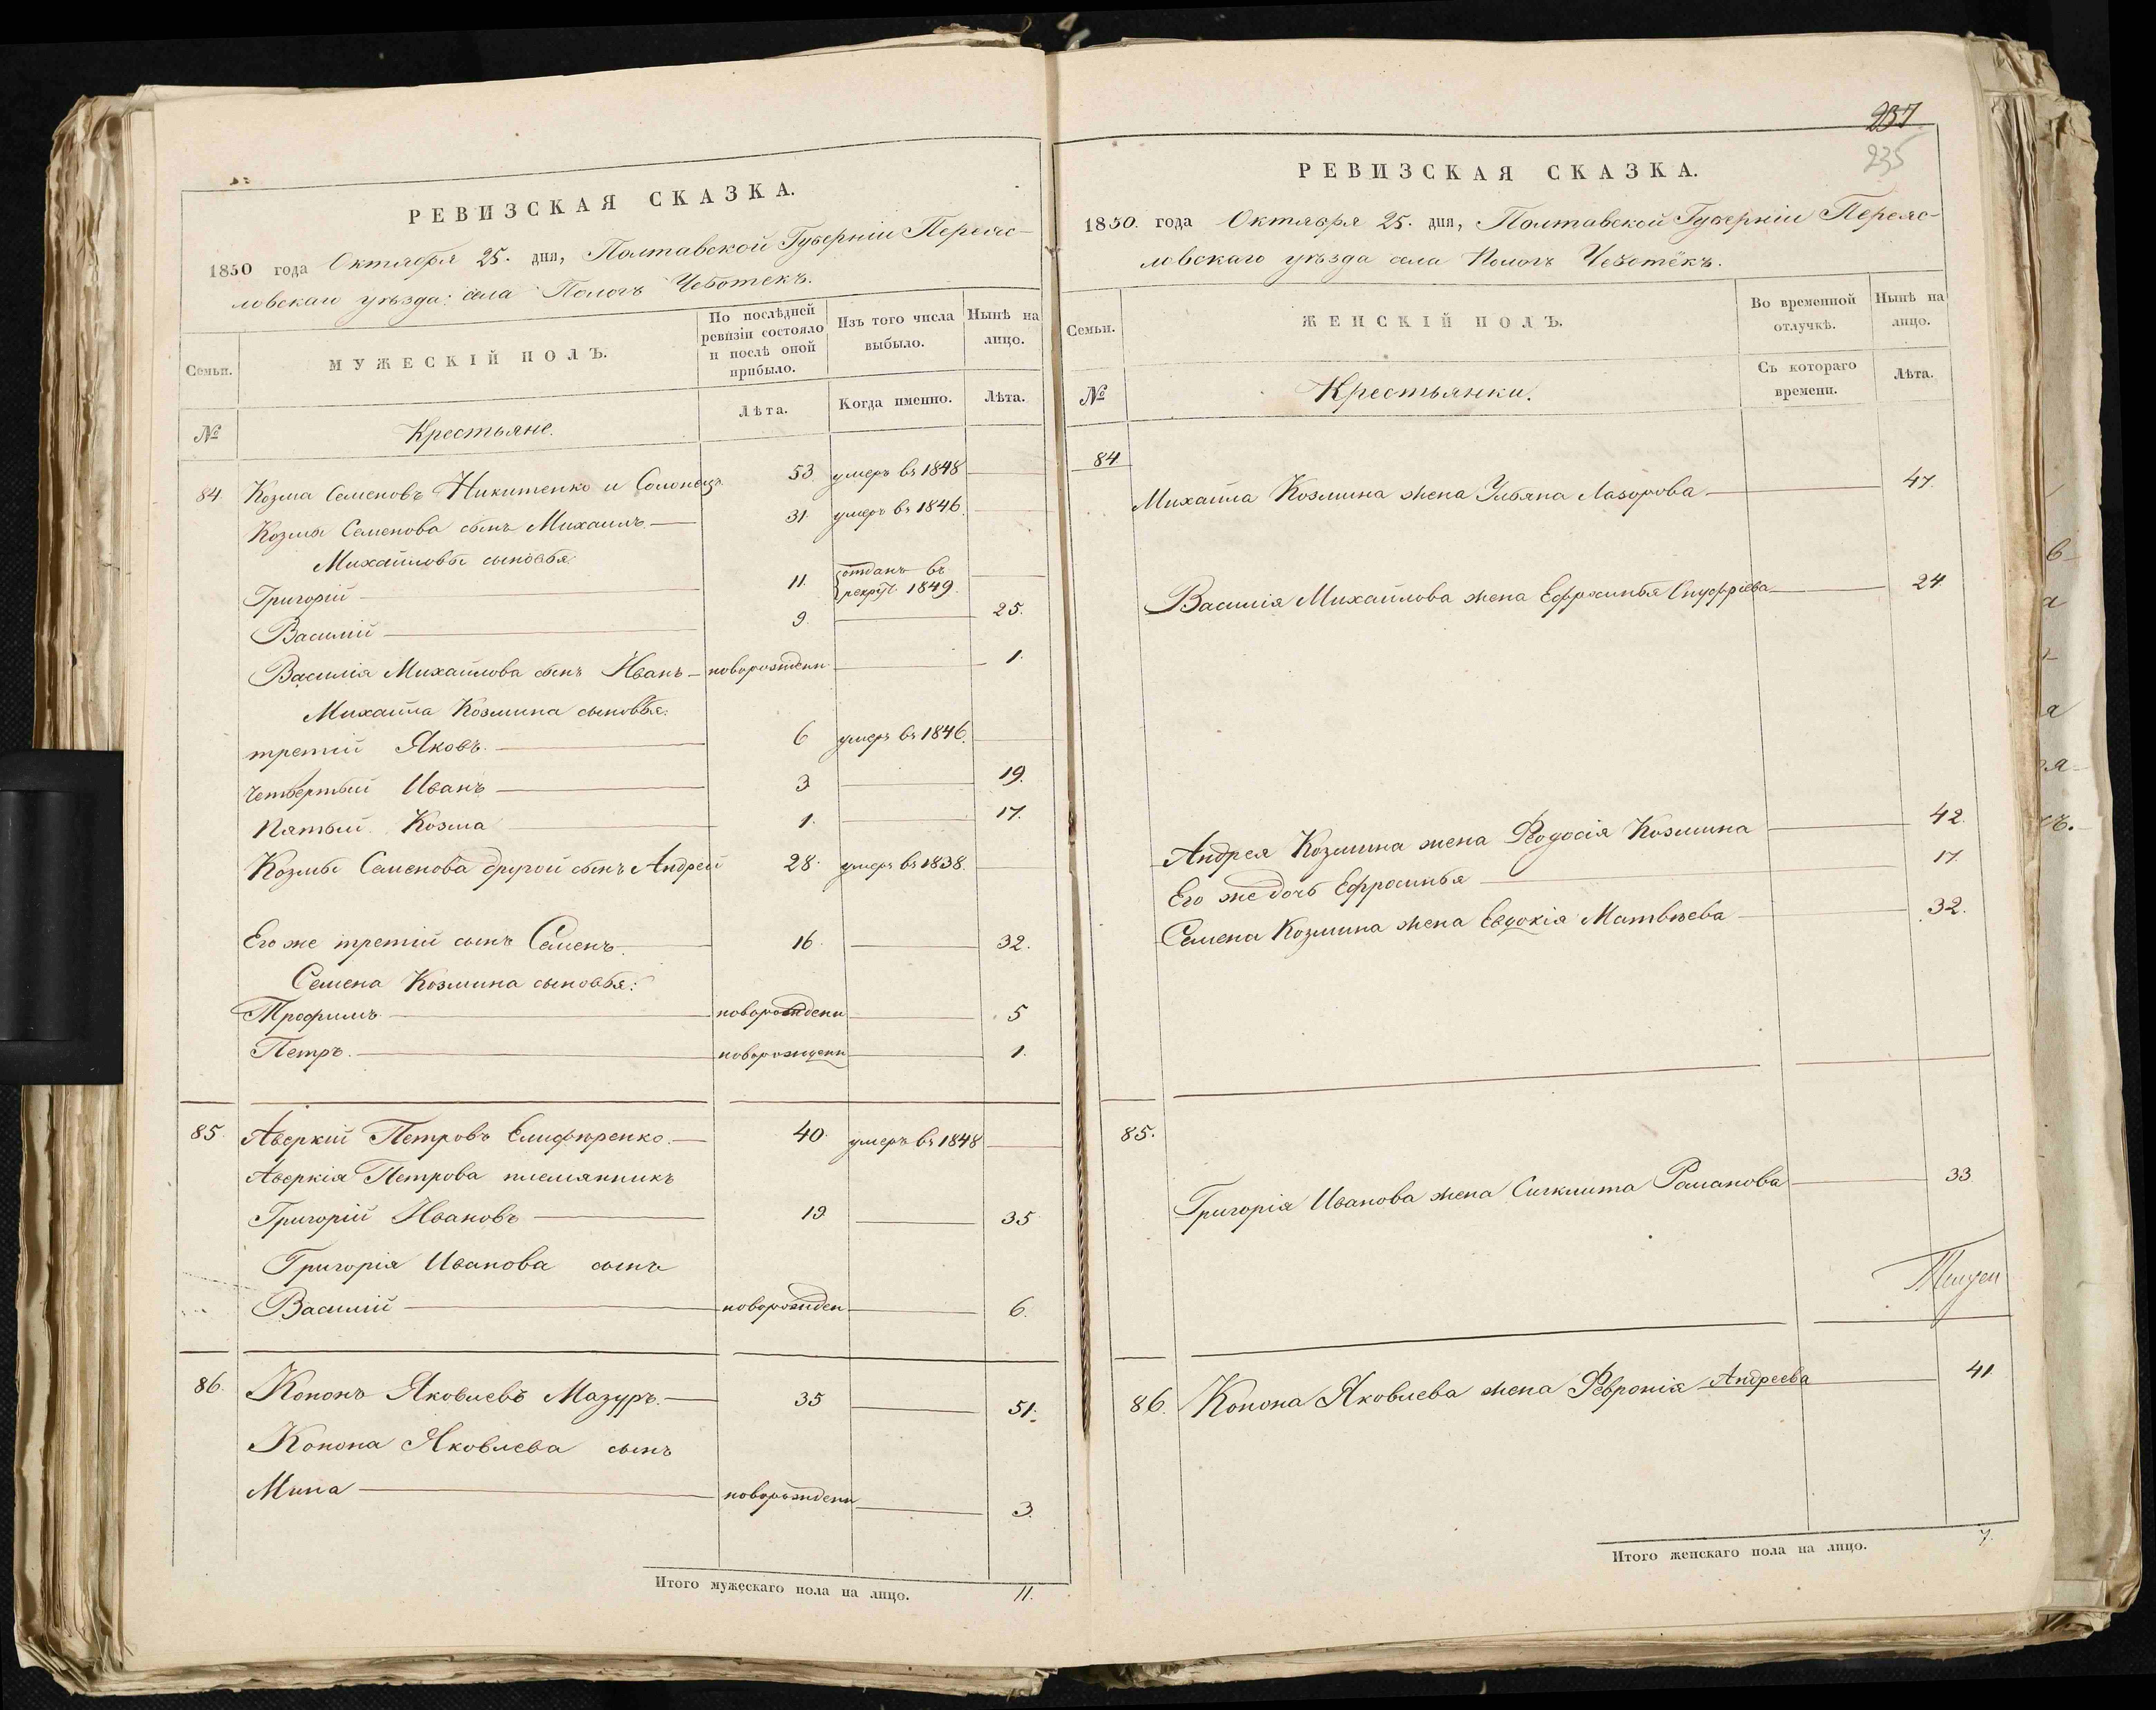 РЕВИЗСКАЯ СКАЗКА.
1850 года Октября 25. дня, Полтавской Губерніи Переяс-
ловскаго уѣзда: села Пологъ Чеботекъ.
Семьи.
МУЖЕСКІЙ ПОЛЪ.
По послѣдней ревизіи состояло и послѣ оной прибыло.
Изъ того числа выбыло.
Нынѣ на лицо.
№
Крестьяне.
Лѣта.
Когда именно.
Лѣта.
84 Козма Семеновъ Никитенко и Солонецъ 53. умеръ въ 1848
Козмы Семенова сынъ Михаилъ 31. умеръ въ 1846.
Михайловы сыновья:
Григорій 11. отданъ въ рекрут. 1849.
Василій 9. 25.
Василія Михайлова сынъ Иванъ новорожденн 1.
Михайла Козмина сыновья:
третій Яковъ. 6 умеръ въ 1846.
Четвертый Иванъ 3 19.
Пятый. Козма 1. 17.
Козмы Семенова другой сынъ Андрей 28. умеръ въ 1838.
Его же третій сынъ Семенъ. 16. 32.
Семена Козмина сыновья:
Трофимъ новорожденн 5
Петръ. новорожденн 1.
85. Аверкій Петровъ Елиференко. 40. умеръ въ 1848
Аверкія Петрова племянникъ
Григорій Ивановъ 19. 35
Григорія Иванова сынъ
Василій новорожден 6.
86. Кононъ Яковлевъ Мазуръ. 35 51.
Конона Яковлева сынъ
Мина новорожденн 3.
Итого мужескаго пола на лицо. 11.
237
235
РЕВИЗСКАЯ СКАЗКА.
1850. года Октября 25. дня, Полтавской Губерніи Переяс-
ловскаго уѣзда села Пологъ Чеботёкъ.
Семьи.
ЖЕНСКІЙ ПОЛЪ.
Во временной отлучкѣ.
Нынѣ на лицо.
№
Крестьянки.
Съ котораго времени.
Лѣта.
84
Михайла Козмина жена Ульяна Лазорова 47.
Василія Михайлова жена Ефросинья Онуфріева 24
Андрея Козмина жена Ѳеодосія Козмина 42.
Его же дочь Ефросинья 17.
Семена Козмина жена Евдокія Матвѣева 32.
85.
Григорія Иванова жена Сигклита Романова 33
86. Конона Яковлева жена Ѳевронія Андреева 41
Итого женскаго пола на лицо. 7.